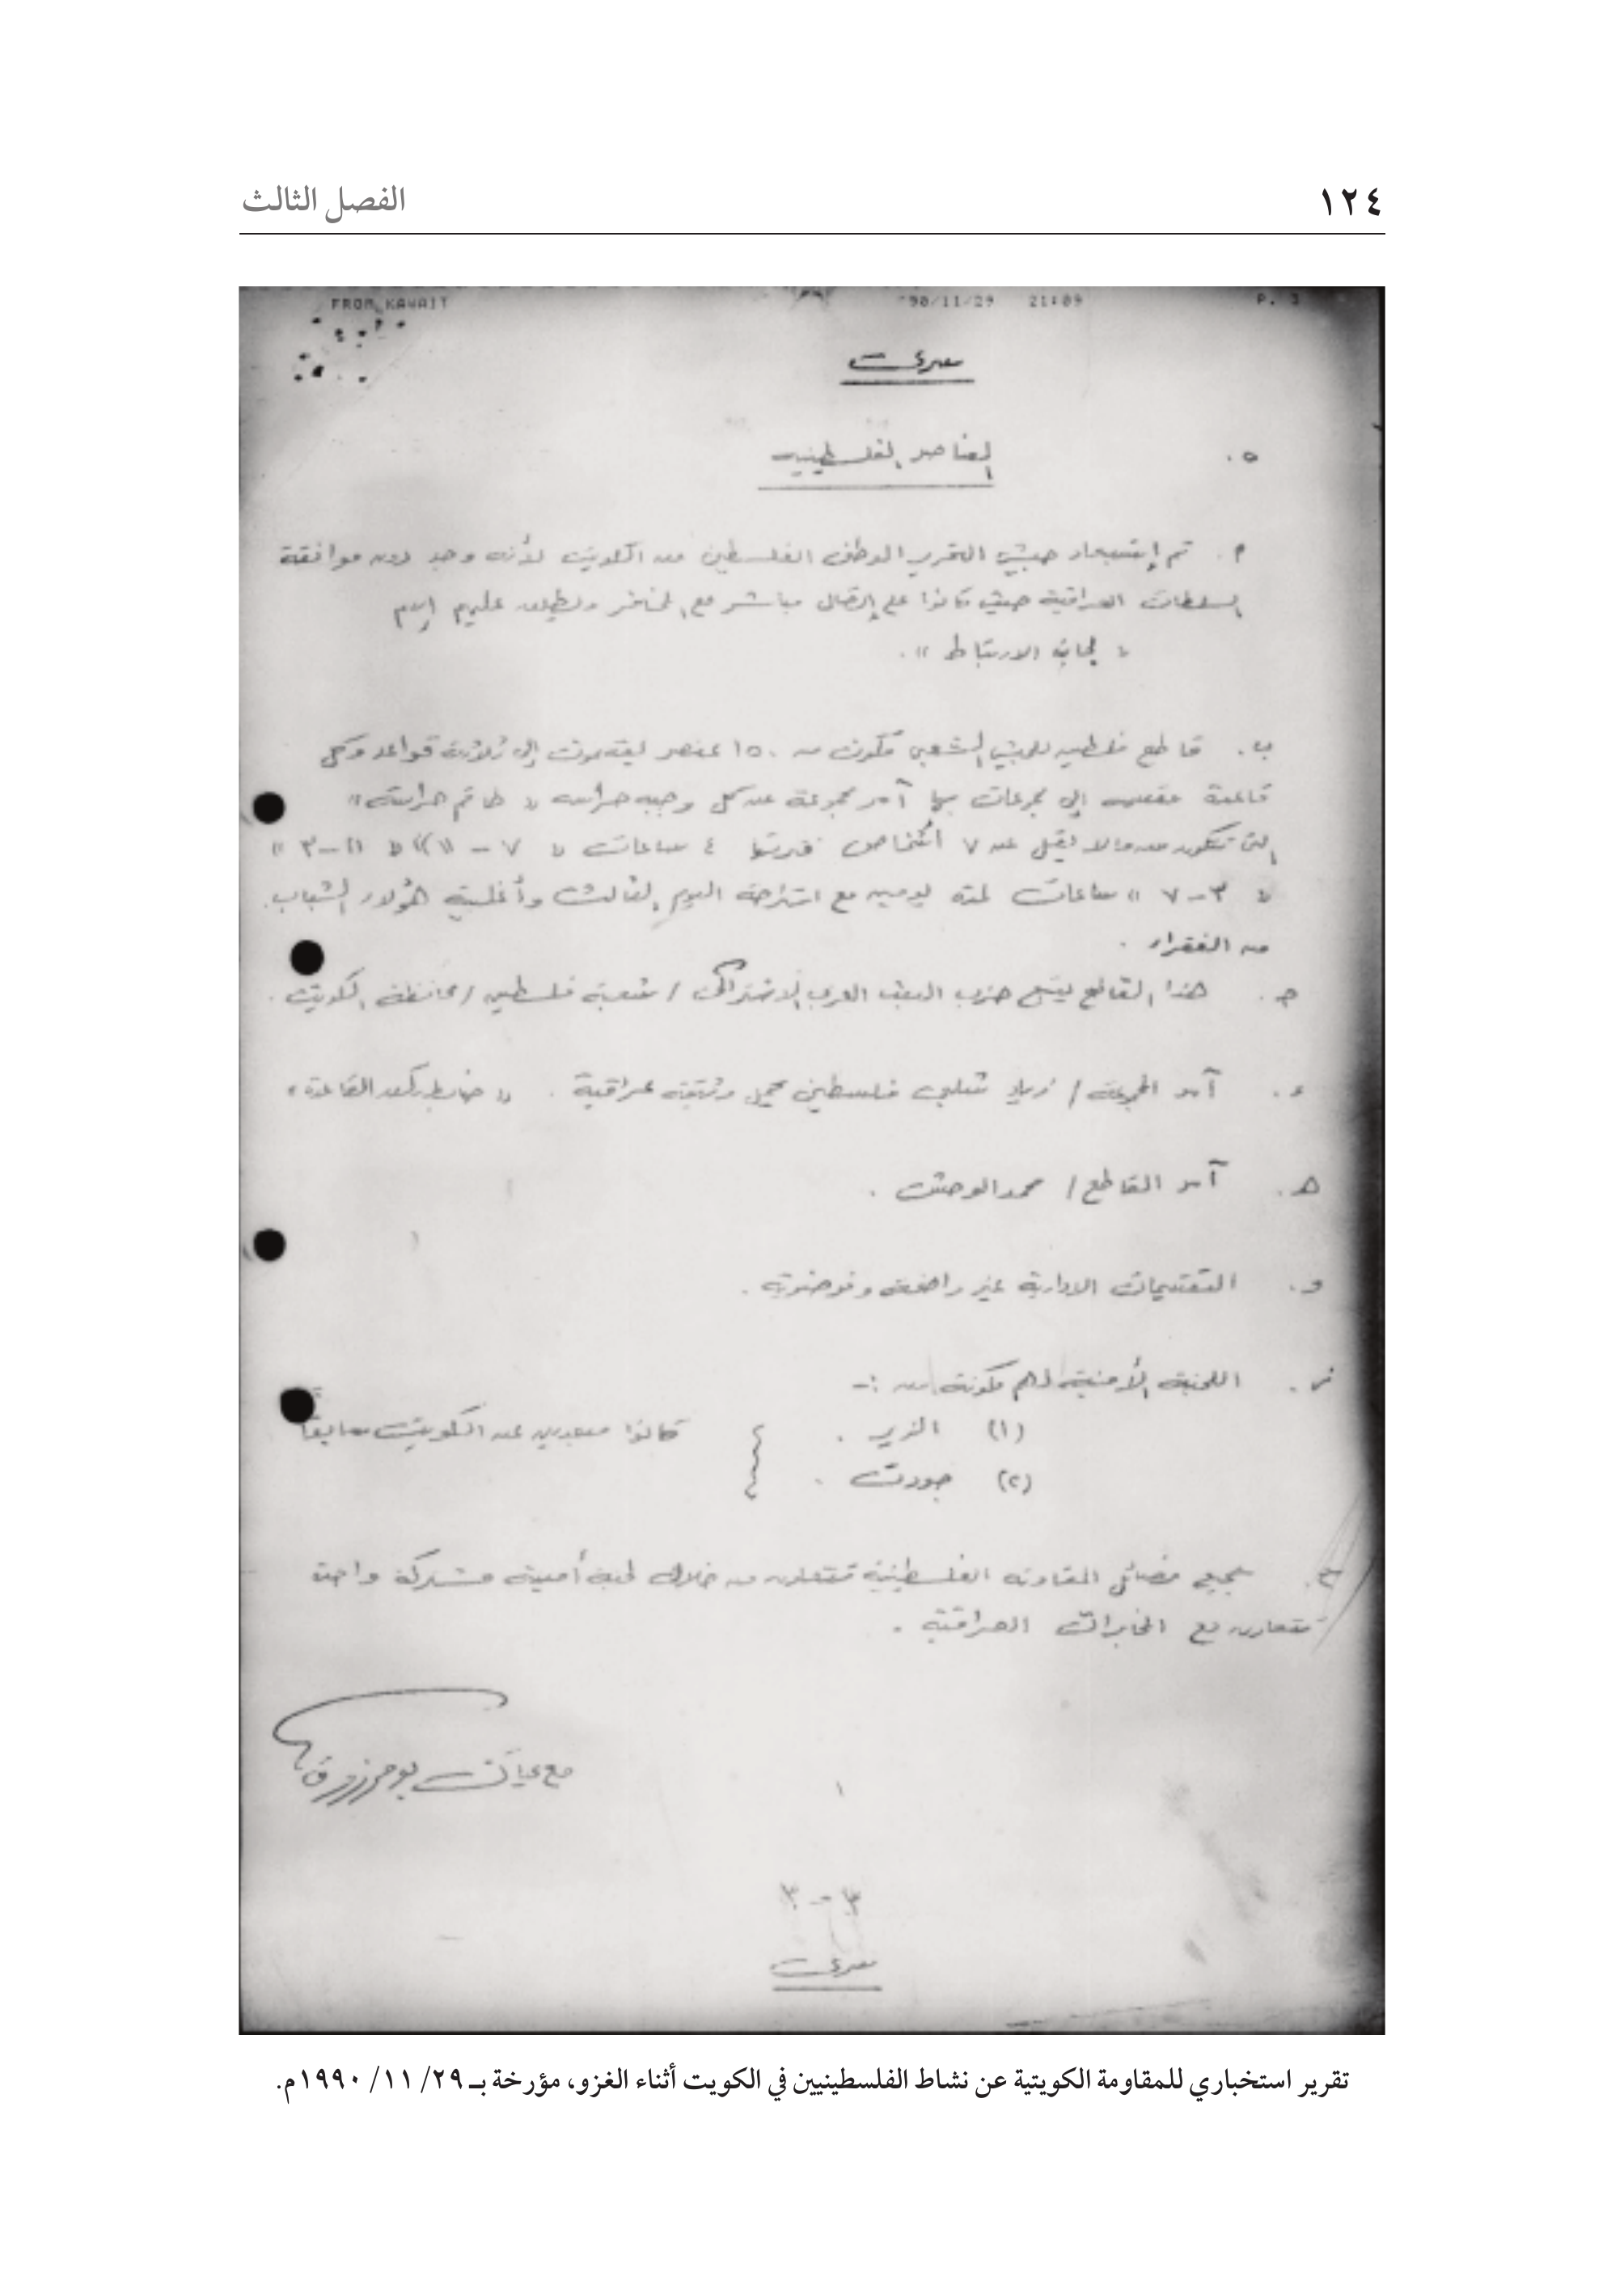 ١٢٤
الفصل الثالث
FROM KAWAIT
'90/11/29 21:09 P. 3
سري
٥. العناصر الفلسطينية
٢. تم إستبعاد جيش التحرير الوطني الفلسطيني من الكويت لأنه وجد دون موافقة
السلطات العراقية حيث كانوا على إتصال مباشر مع المخافر ويطلق عليهم إسم
« لجان الارتباط ».
ب. قاطع فلسطين للجيش الشعبي مكون من ١٥٠ عنصر يقسمون إلى ثلاثة قواعد وكل
قاعدة مقسمه إلى مجموعات بها آمر مجموعة عن كل وجبه حراسه « طاقم حراسة »
التي تتكون من مالا يقل عن ٧ أشخاص فترتها ٤ ساعات « ٧ - ١١ » « ١١ - ٣ »
« ٣ - ٧ » ساعات لمدة يومين مع استراحة اليوم الثالث وأغلبية هؤلاء الشباب
من الفقراء .
ج. هذا القاطع يتبع حزب البعث العربي الاشتراكي / شعبة فلسطين / محافظة الكويت .
د. آمر المجموعة / زياد شلبي فلسطيني يحمل وثيقة عراقية . « ضابط ركن القاعدة »
هـ. آمر القاطع / محمد الوحش .
و. التقسيمات الادارية غير واضحة وفوضوية .
ز. اللجنة الأمنية لهم مكونة من :-
(١) الزير .
(٢) جودت . } كانوا مبعدين عن الكويت سابقاً
ح. جميع فصائل المقاومة الفلسطينية تتعاون من خلال لجنة أمنية مشتركة واحدة
تتعاون مع المخابرات العراقية .
مع تحيات بو مرزوق
٣ - ٣
سري
تقرير استخباري للمقاومة الكويتية عن نشاط الفلسطينيين في الكويت أثناء الغزو، مؤرخة بـ ٢٩/ ١١/ ١٩٩٠م.